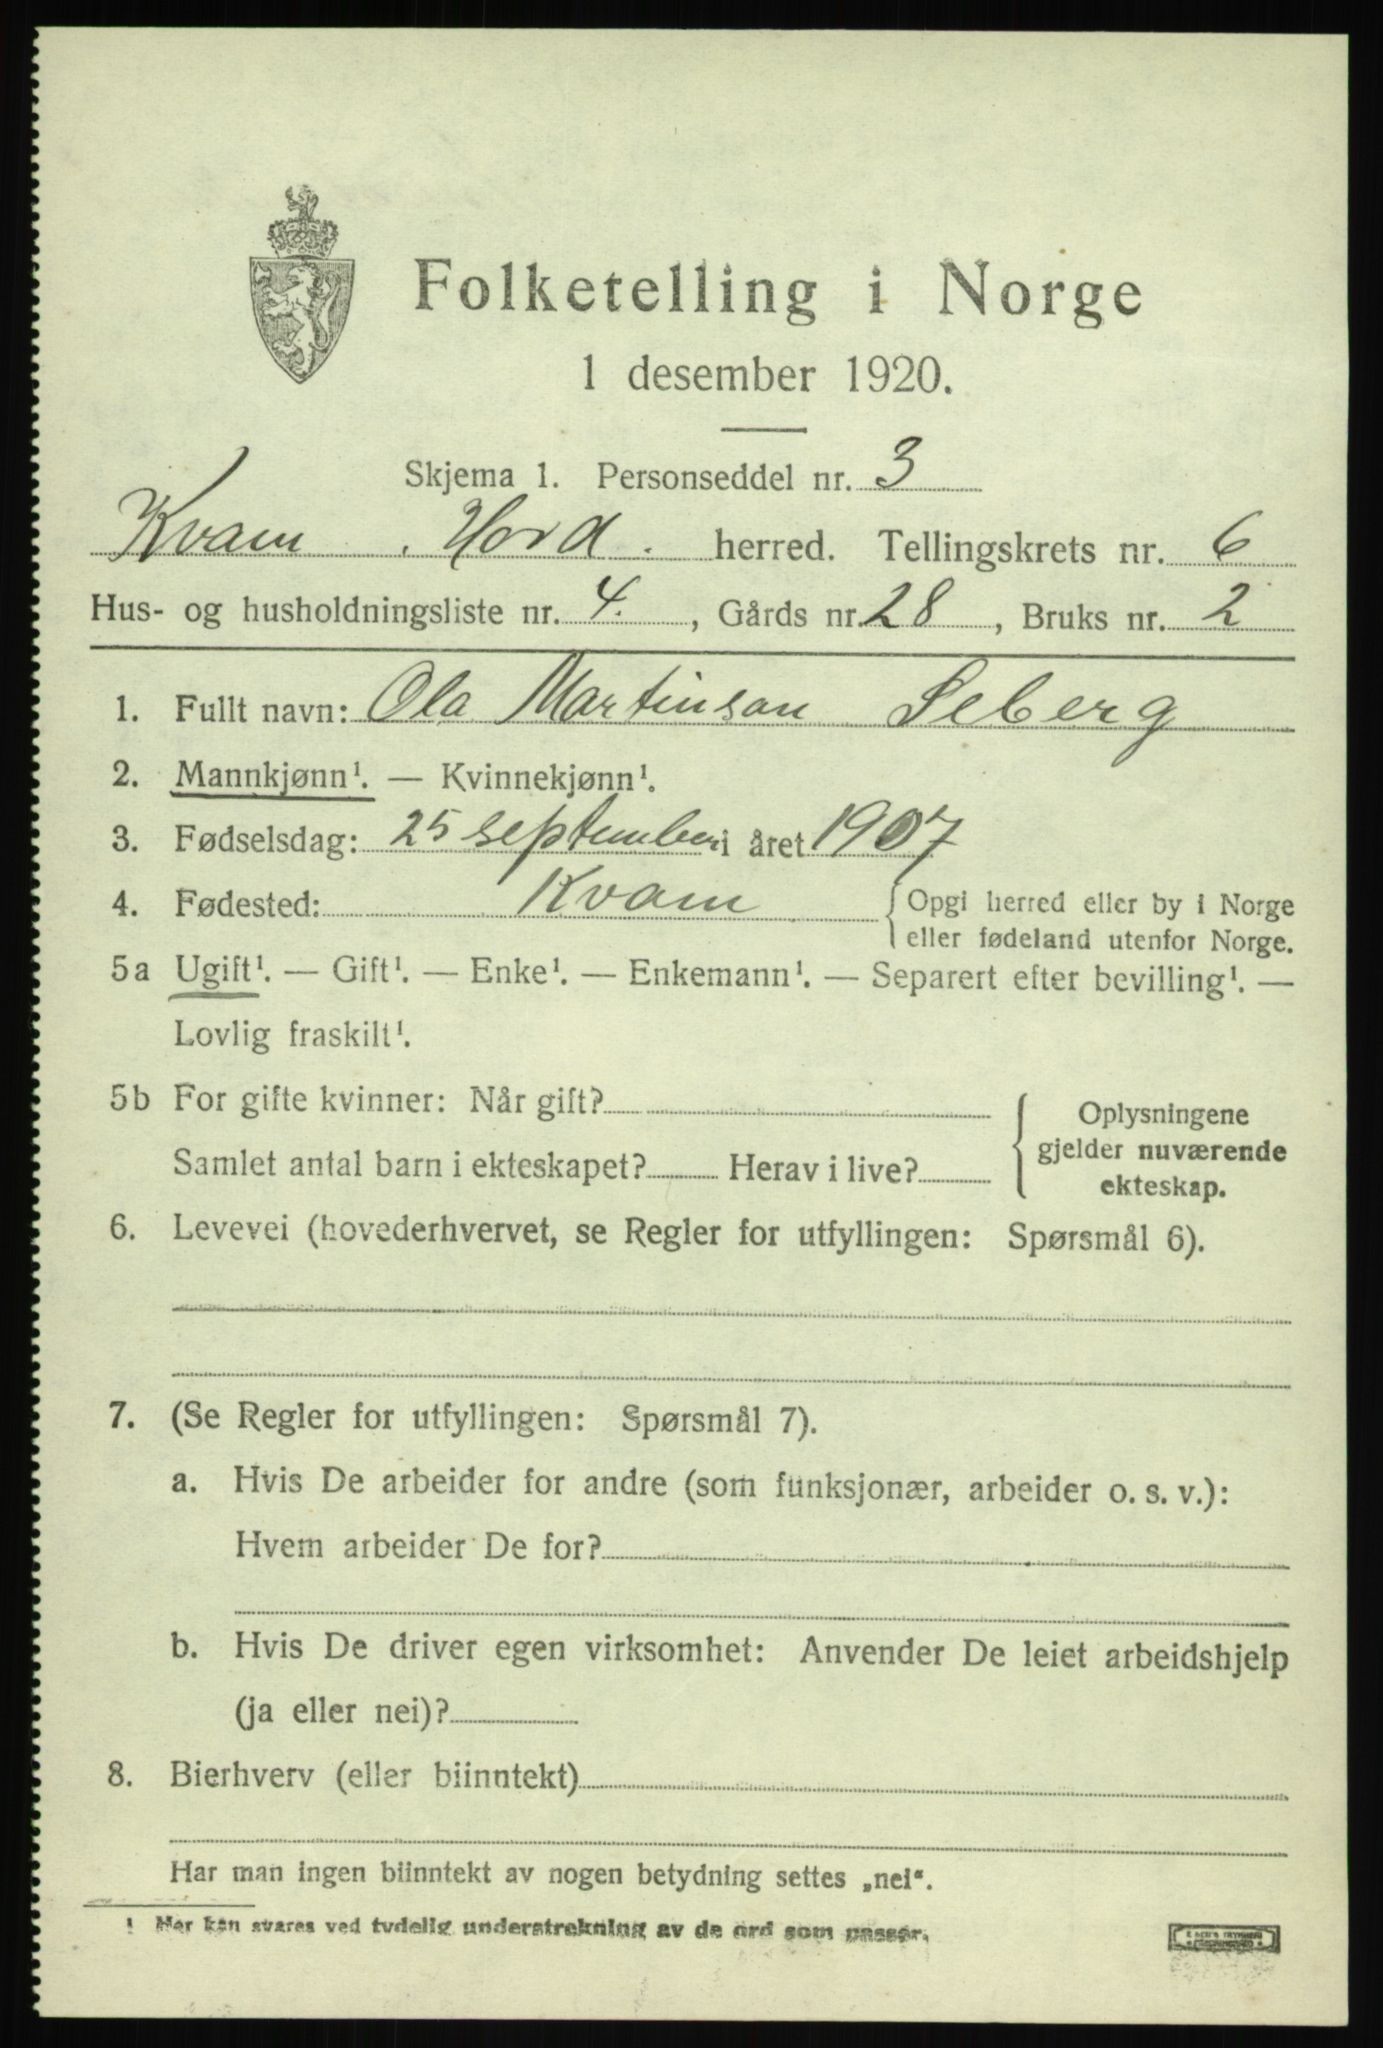 Folketelling i Norge
1 desember 1920.
Skjema 1. Personseddel nr. 3
Kvam, Hord. herred. Tellingskrets nr. 6
Hus- og husholdningsliste nr. 4., Gårds nr. 28, Bruks nr. 2
1. Fullt navn: Ola Martinson Seberg
2. Mannkjønn¹. — Kvinnekjønn¹.
3. Fødselsdag: 25 september i året 1907
4. Fødested: Kvam { Opgi herred eller by i Norge
eller fødeland utenfor Norge.
5a Ugift¹. — Gift¹. — Enke¹. — Enkemann¹. — Separert efter bevilling¹. —
Lovlig fraskilt¹.
5b For gifte kvinner: Når gift?
Samlet antal barn i ekteskapet? Herav i live?
{ Oplysningene
gjelder nuværende
ekteskap.
6. Levevei (hovederhvervet, se Regler for utfyllingen: Spørsmål 6).
7. (Se Regler for utfyllingen: Spørsmål 7).
a. Hvis De arbeider for andre (som funksjonær, arbeider o. s. v.):
Hvem arbeider De for?
b. Hvis De driver egen virksomhet: Anvender De leiet arbeidshjelp
(ja eller nei)?
8. Bierhverv (eller biinntekt)
Har man ingen biinntekt av nogen betydning settes „nei".
¹ Her kan svares ved tydelig understrekning av de ord som passer.